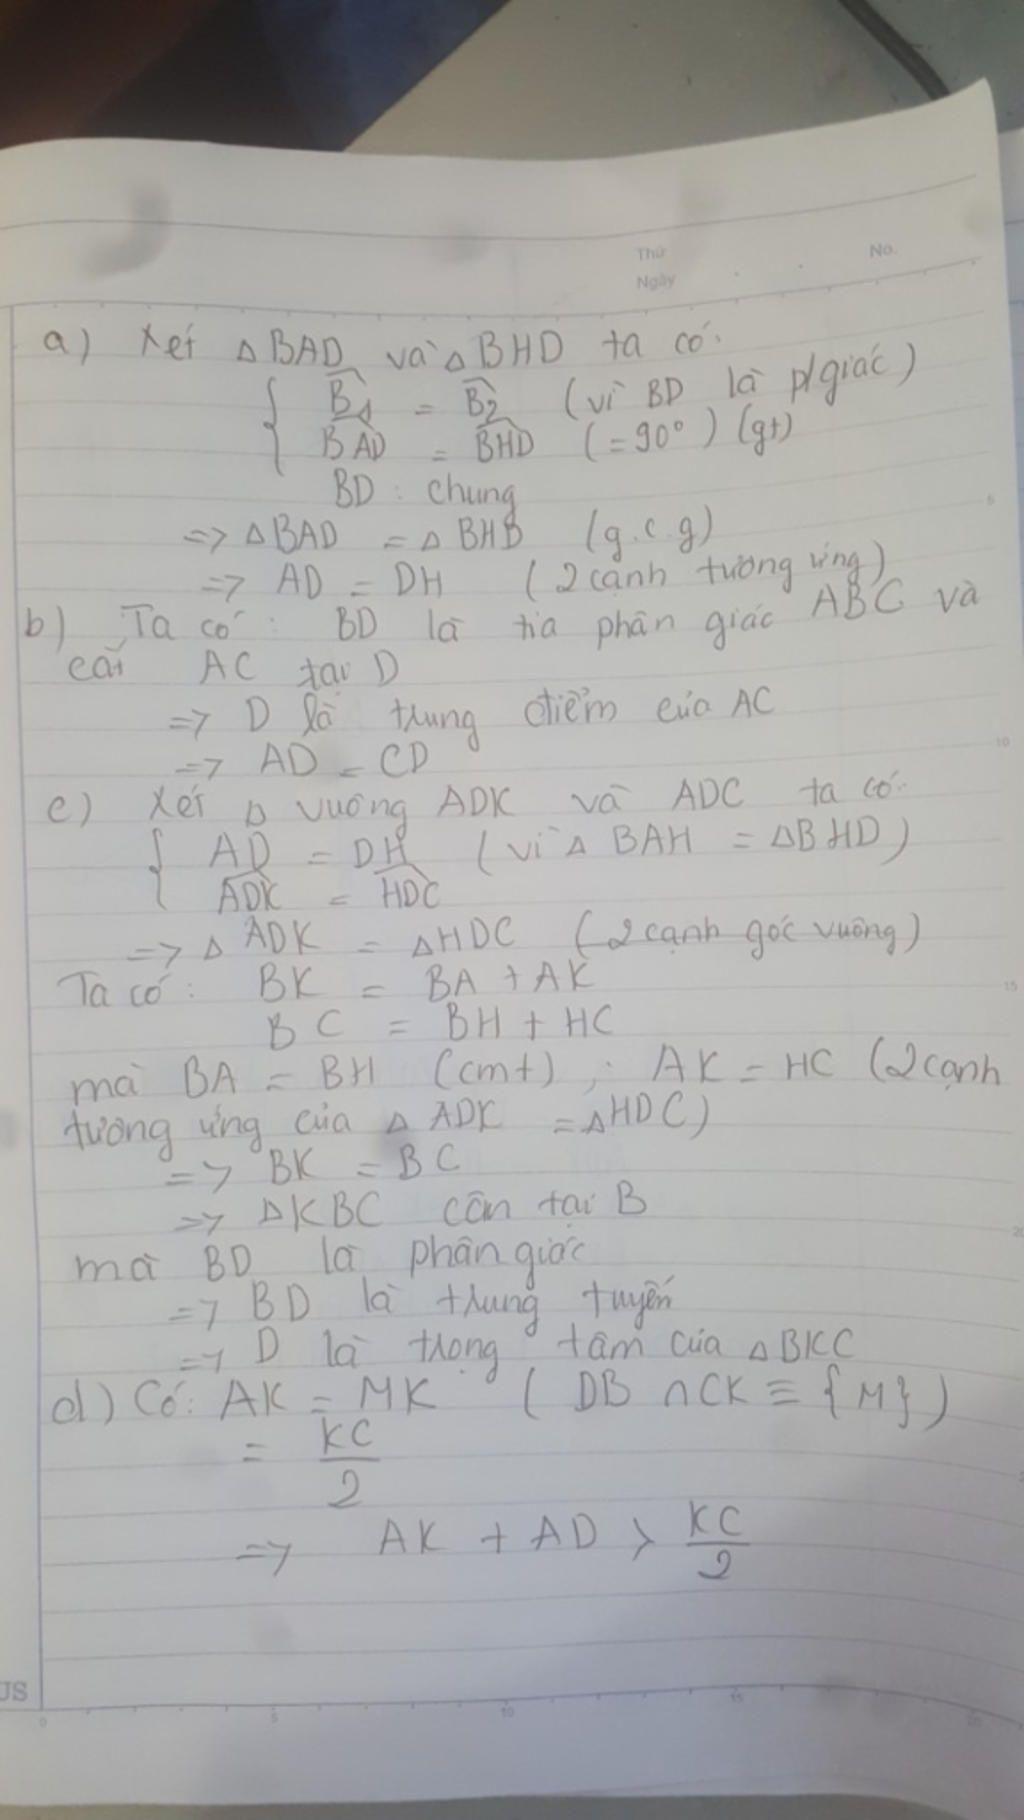 Thứ
No.
Ngày
a) Xét △BAD và △BHD ta có:
B1 = B2 (vì BD là p/giác)
BAD = BHD (= 90°) (gt)
BD : chung
=> △BAD = △BHB (g.c.g)
=> AD = DH (2 cạnh tương ứng)
b) Ta có: BD là tia phân giác ABC và
cắt AC tại D
=> D là trung điểm của AC
=> AD = CD
c) Xét △ vuông ADK và ADC ta có:
AD = DH (vì △BAH = △BHD)
ADK = HDC
=> △ ADK = △HDC (2 cạnh góc vuông)
Ta có: BK = BA + AK
BC = BH + HC
mà BA = BH (cmt) ; AK = HC (2 cạnh
tương ứng của △ ADK = △HDC)
=> BK = BC
=> △KBC cân tại B
mà BD là phân giác
=> BD là trung tuyến
=> D là trọng tâm của △BKC
d) Có: AK = MK ( DB ∩ CK ≡ {M} )
= KC/2
=> AK + AD > KC/2
US
5
10
15
20
0
5
10
15
20